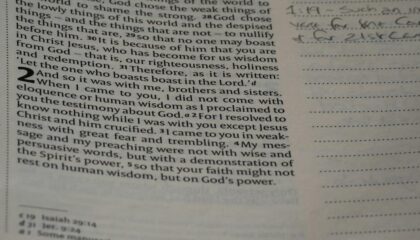 the world to shame the strong. 28 God chose
the lowly things of this world and the despised
things – and the things that are not – to nullify
the things that are, 29 so that no one may boast
before him. 30 It is because of him that you are
in Christ Jesus, who has become for us wisdom
from God – that is, our righteousness, holiness
and redemption. 31 Therefore, as it is written:
'Let the one who boasts boast in the Lord.' d
2 And so it was with me, brothers and sisters.
When I came to you, I did not come with
eloquence or human wisdom as I proclaimed to
you the testimony about God. e 2 For I resolved to
know nothing while I was with you except Jesus
Christ and him crucified. 3 I came to you in weak-
ness with great fear and trembling. 4 My mes-
sage and my preaching were not with wise and
persuasive words, but with a demonstration of
the Spirit's power, 5 so that your faith might not
rest on human wisdom, but on God's power.
c 19 Isaiah 29:14
d 31 Jer. 9:24
e 1 Some
1:17 – Such an
for
for 21st